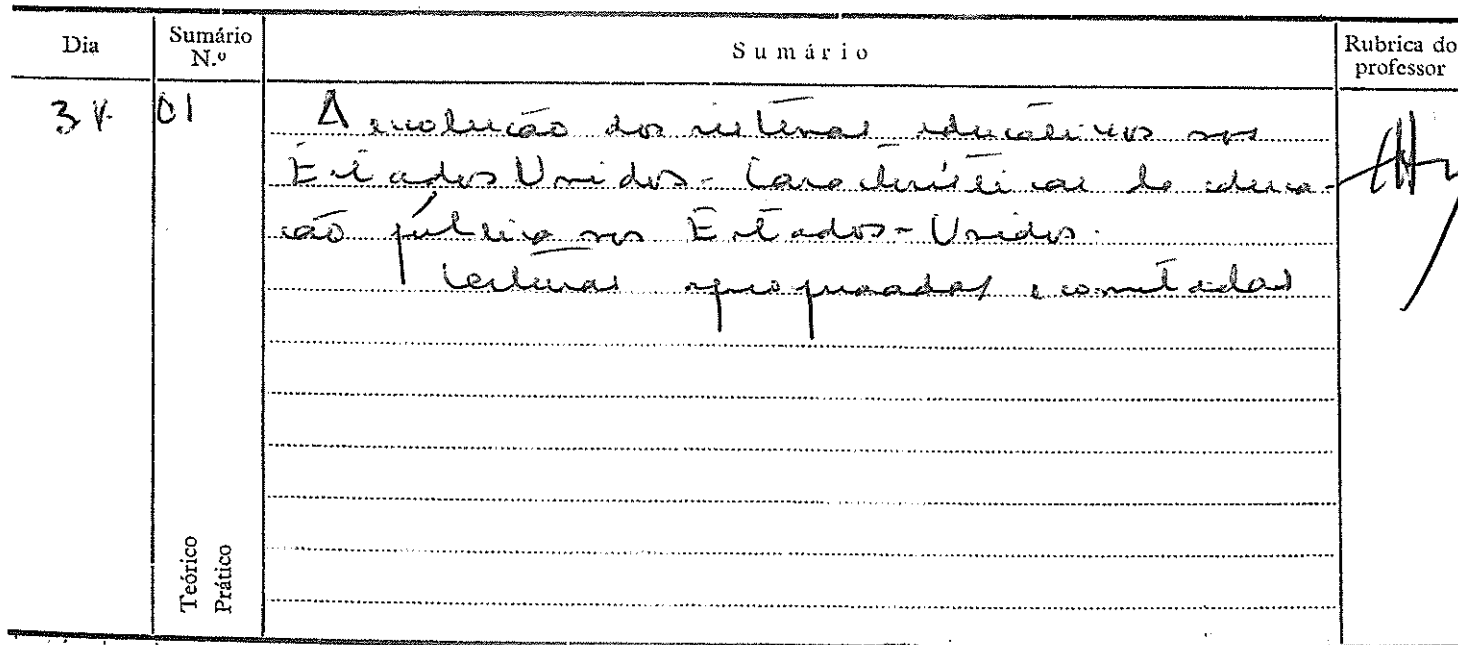 Dia
Sumário N.º
Sumário
Rubrica do professor
A evolução dos sistemas educativos nos
Estados Unidos - Características da educa-
ção pública nos Estados-Unidos.
Leituras apropriadas e comentadas
Teórico
Prático